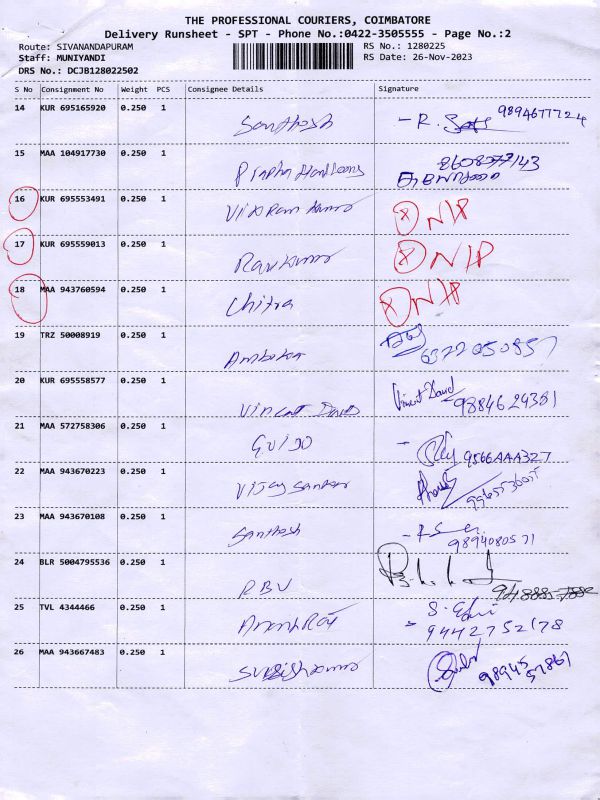 THE PROFESSIONAL COURIERS, COIMBATORE
Delivery Runsheet - SPT - Phone No.:0422-3505555 - Page No.:2
Route: SIVANANDAPURAM
RS No.: 1280225
Staff: MUNIYANDI
RS Date: 26-Nov-2023
DRS No.: DCJB128022502
S No Consignment No Weight PCS Consignee Details Signature
14 KUR 695165920 0.250 1
Santhosh - R. 9894677724
15 MAA 104917730 0.250 1
Prapha
16 KUR 695553491 0.250 1
Vikram Kumar N/P
17 KUR 695559013 0.250 1
Ravikumar N/P
18 MAA 943760594 0.250 1
Chitra N/P
19 TRZ 50008919 0.250 1
6377050857
20 KUR 695558577 0.250 1
Vincent David Vincent David 9884629381
21 MAA 572758306 0.250 1
GUIDO 9566AAA327
22 MAA 943670223 0.250 1
Vijay Sankar
23 MAA 943670108 0.250 1
Santhosh 9894080571
24 BLR 5004795536 0.250 1
RBU
25 TVL 4344466 0.250 1
Anandraj 9442752178
26 MAA 943667483 0.250 1
9894557867